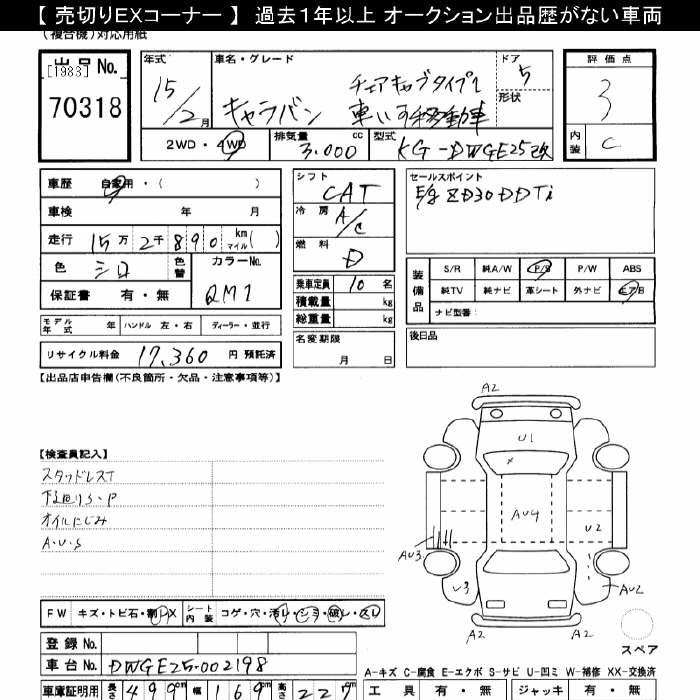 【 売切りEXコーナー 】 過去1年以上 オークション出品歴がない車両
（複合機）対応用紙
出品No.
[1983]
70318
年式
15/2月
車名・グレード
チェアキャブタイプ1
キャラバン 車いす移動車
ドア 5
形状
2WD・4WD
排気量 3.000 cc
型式 KG-DWGE25改
評価点
3
内装 C
車歴 自家用・( )
車検 年 月
走行 15万2千890 km マイル( )
色 シロ 色替
カラーNo.
QM1
保証書 有・無
モデル年式 年 ハンドル 左・右 ディーラー・並行
リサイクル料金 17,360 円 預託済
シフト
CAT
冷房 A/C
燃料 D
乗車定員 10 名
積載量 kg
総重量 kg
名変期限
月 日
セールスポイント
E/g ZD30DDTi
装備品
S/R 純A/W P/S P/W ABS
純TV 純ナビ 革シート 外ナビ エアB
ナビ型番:
後日品
【出品店申告欄(不良箇所・欠品・注意事項等)】
【検査員記入】
スタッドレスT
下廻りS・P
オイルにじみ
A・U・S
A2
U1
×
AU4
U2
AU3
U3
AU2
A2
A2
スペア
FW キズ・トビ石・割レX シート内装 コゲ・穴・汚レ・シミ・破レ・スレ
登録No.
車台No. DWGE25-002198
車庫証明用 長さ 499cm 幅 169cm 高さ 227cm
A-キズ C-腐食 E-エクボ S-サビ U-凹ミ W-補修 XX-交換済
工具 有・無 ジャッキ 有・無